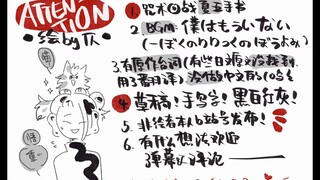 ATTEN-
TION
•绘by仄•
1.咒术回战夏五手书
2.BGM:僕はもういない
(一ぼくのりりっくのぼうよみ)
3.有原作台词(有些日源没找到,
用了番源),没做中文配的哈
4 草稿!手写字!黑白红灰!
5.非绘者本人b站号发布!
6.有什么想法欢迎
弹幕以评论——